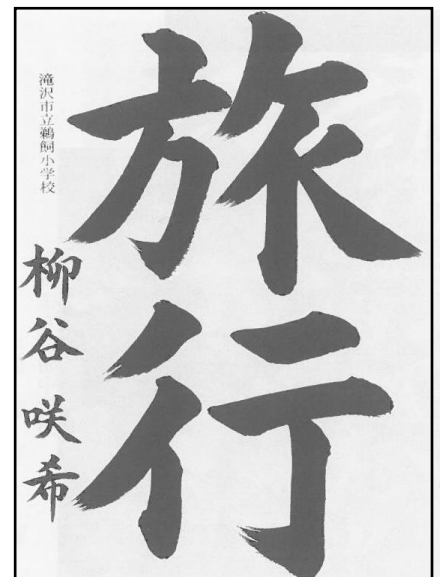 旅行
滝沢市立鵜飼小学校
柳谷咲希